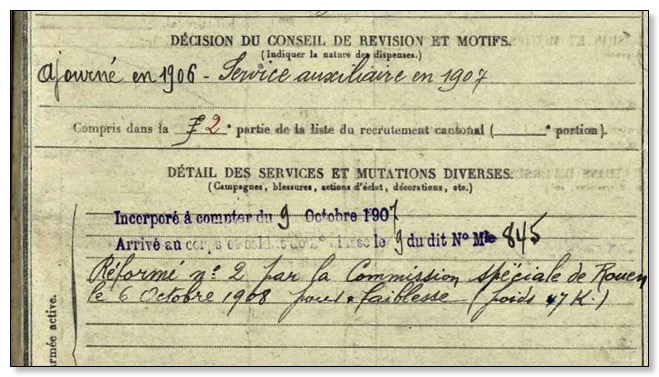 DÉCISION DU CONSEIL DE REVISION ET MOTIFS.
(Indiquer la nature des dispenses.)
Ajourné en 1906 - Service auxiliaire en 1907
Compris dans la 2e partie de la liste du recrutement cantonal ( e portion).
DÉTAIL DES SERVICES ET MUTATIONS DIVERSES.
(Campagnes, blessures, actions d'éclat, décorations, etc.)
Incorporé à compter du 9 Octobre 1907
Arrivé au corps et soldat de 2e classe le 9 du dit No Mle 845
Réformé no 2 par la Commission spéciale de Rouen
le 6 Octobre 1908 pour faiblesse (poids 47 K.)
armée active.